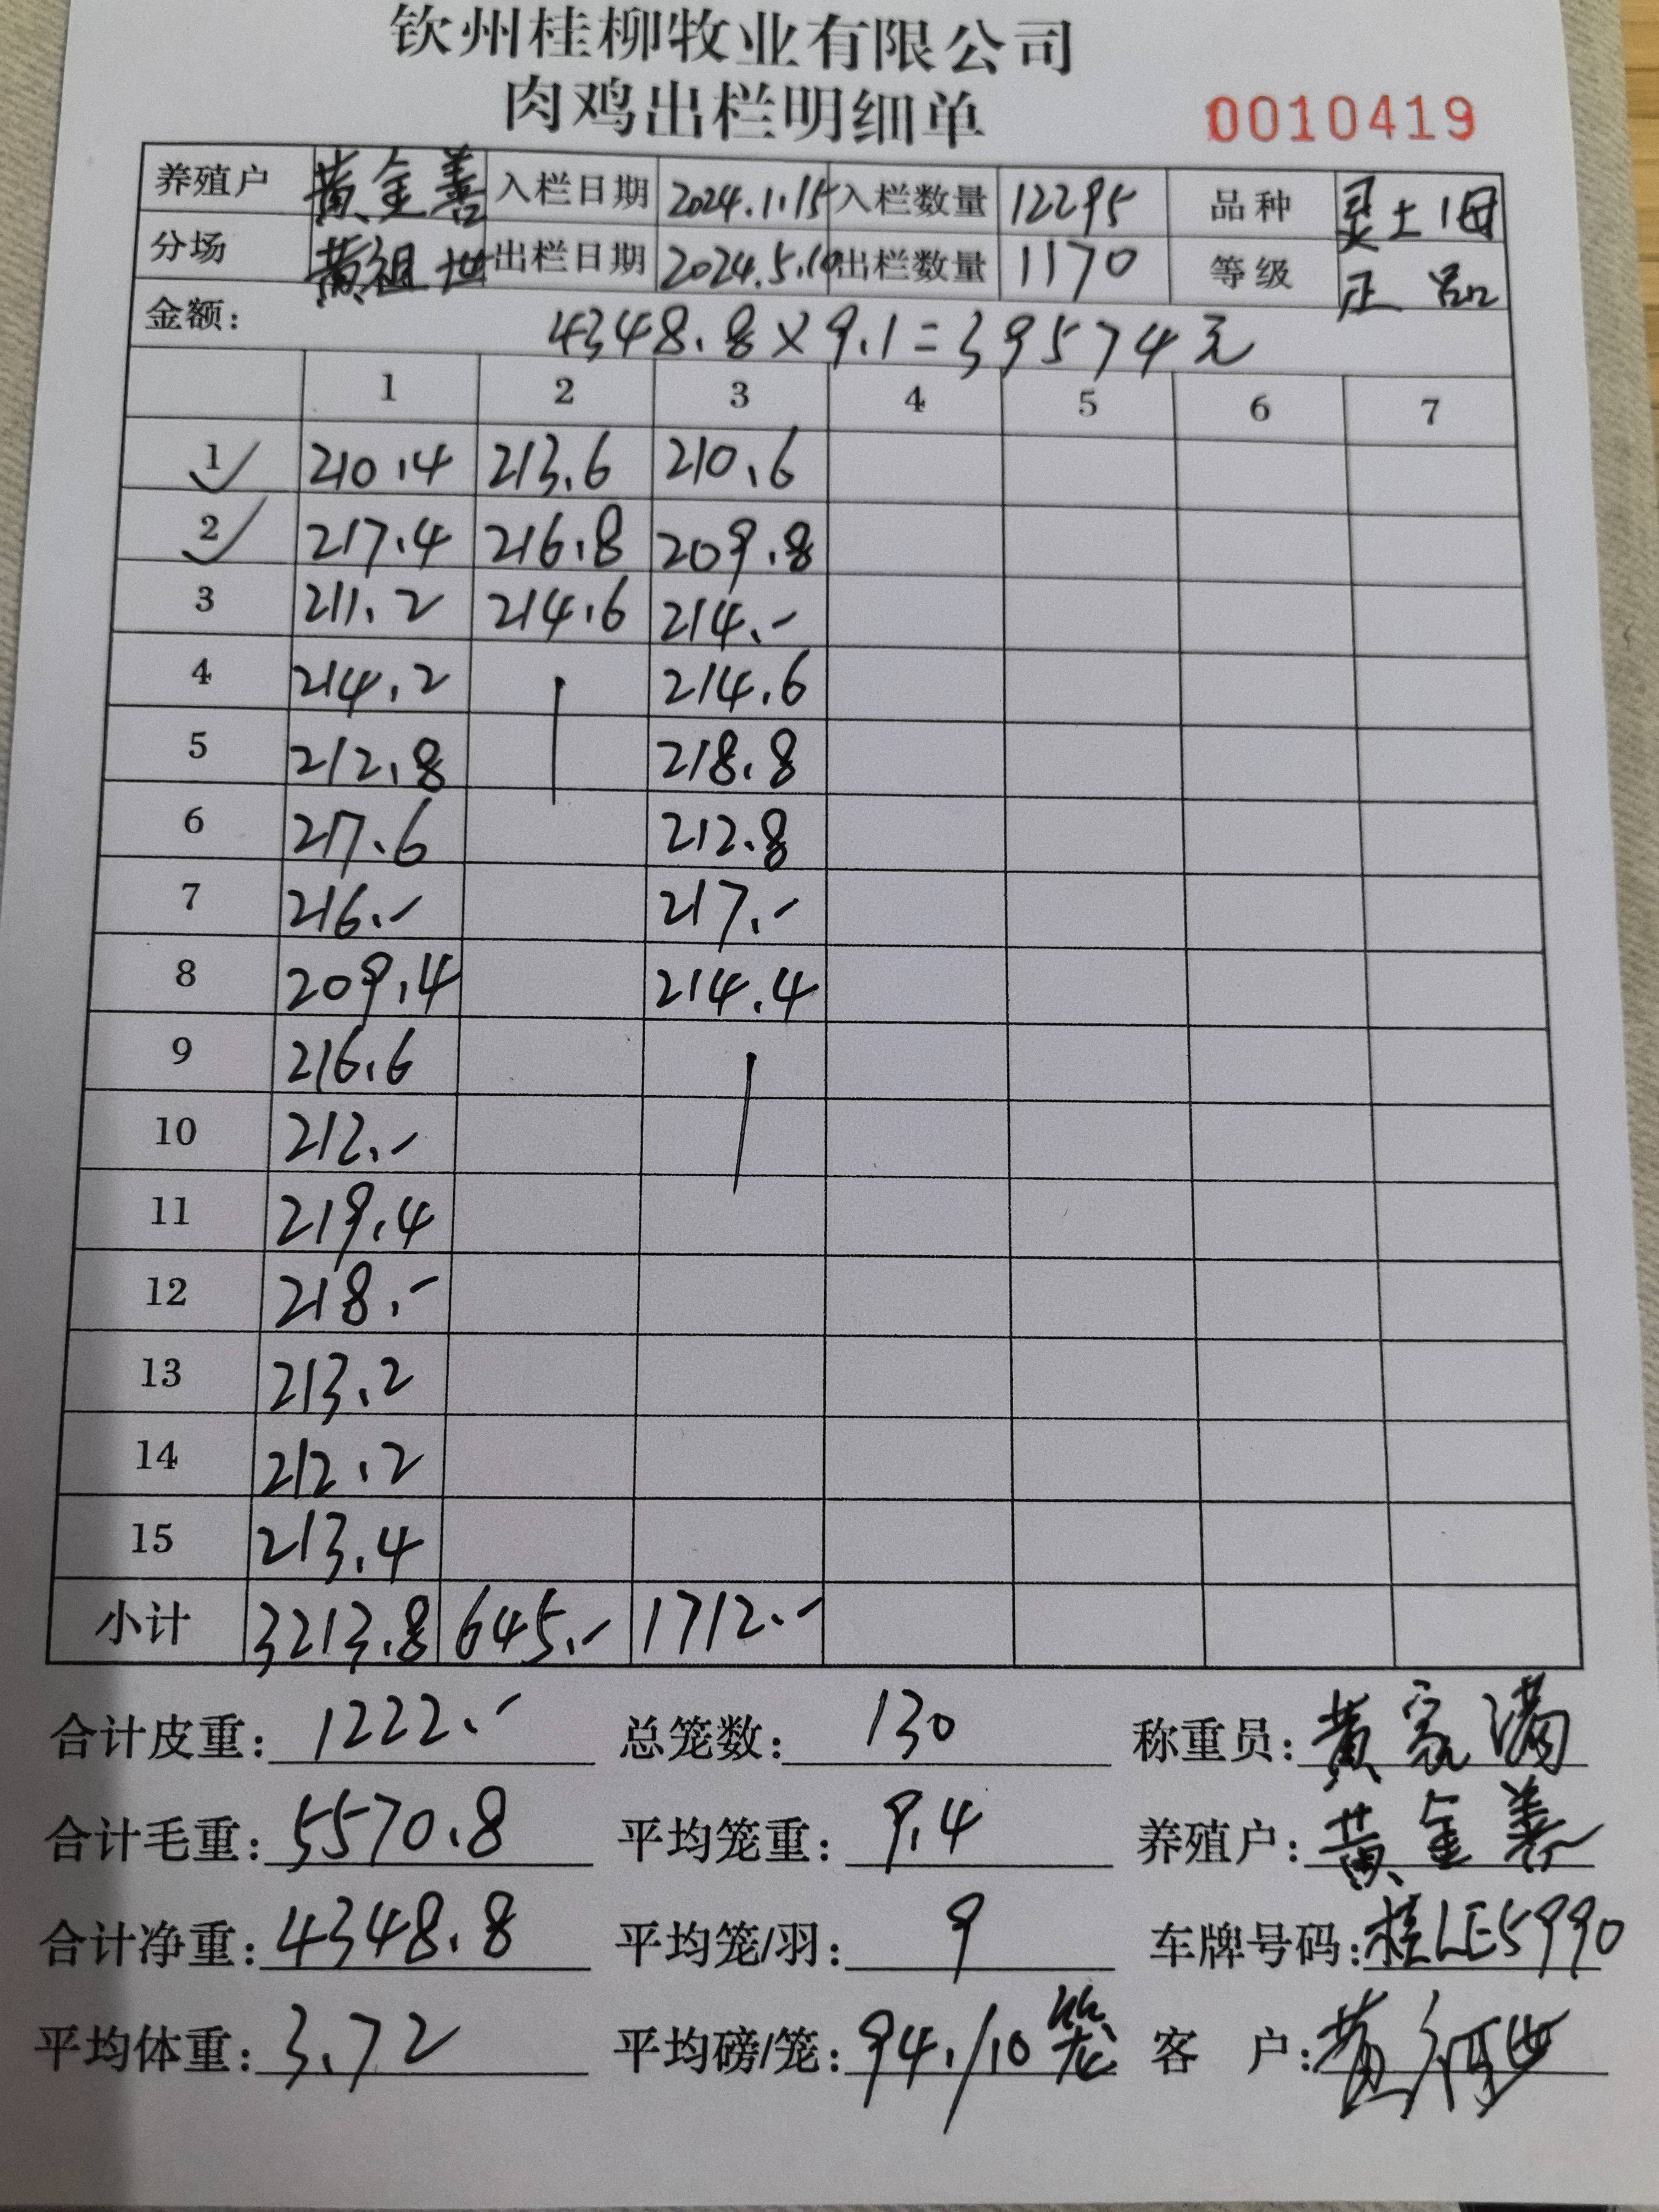 钦州桂柳牧业有限公司
肉鸡出栏明细单 0010419
养殖户 黄金善 入栏日期 2024.1.15 入栏数量 12295 品种 灵土1母
分场 黄祖世 出栏日期 2024.5.10 出栏数量 1170 等级 正品
金额: 4348.8×9.1=39574元
1 2 3 4 5 6 7
1 210.4 213.6 210.6
2 217.4 216.8 209.8
3 211.2 214.6 214.-
4 214.2 214.6
5 212.8 218.8
6 217.6 212.8
7 216.- 217.-
8 209.4 214.4
9 216.6
10 212.-
11 219.4
12 218.-
13 213.2
14 212.2
15 213.4
小计 3213.8 645.- 1712.-
合计皮重: 1222.- 总笼数: 130 称重员: 黄家满
合计毛重: 5570.8 平均笼重: 9.4 养殖户: 黄金善
合计净重: 4348.8 平均笼/羽: 9 车牌号码: 桂LE5990
平均体重: 3.72 平均磅/笼: 94./10笼 客 户: